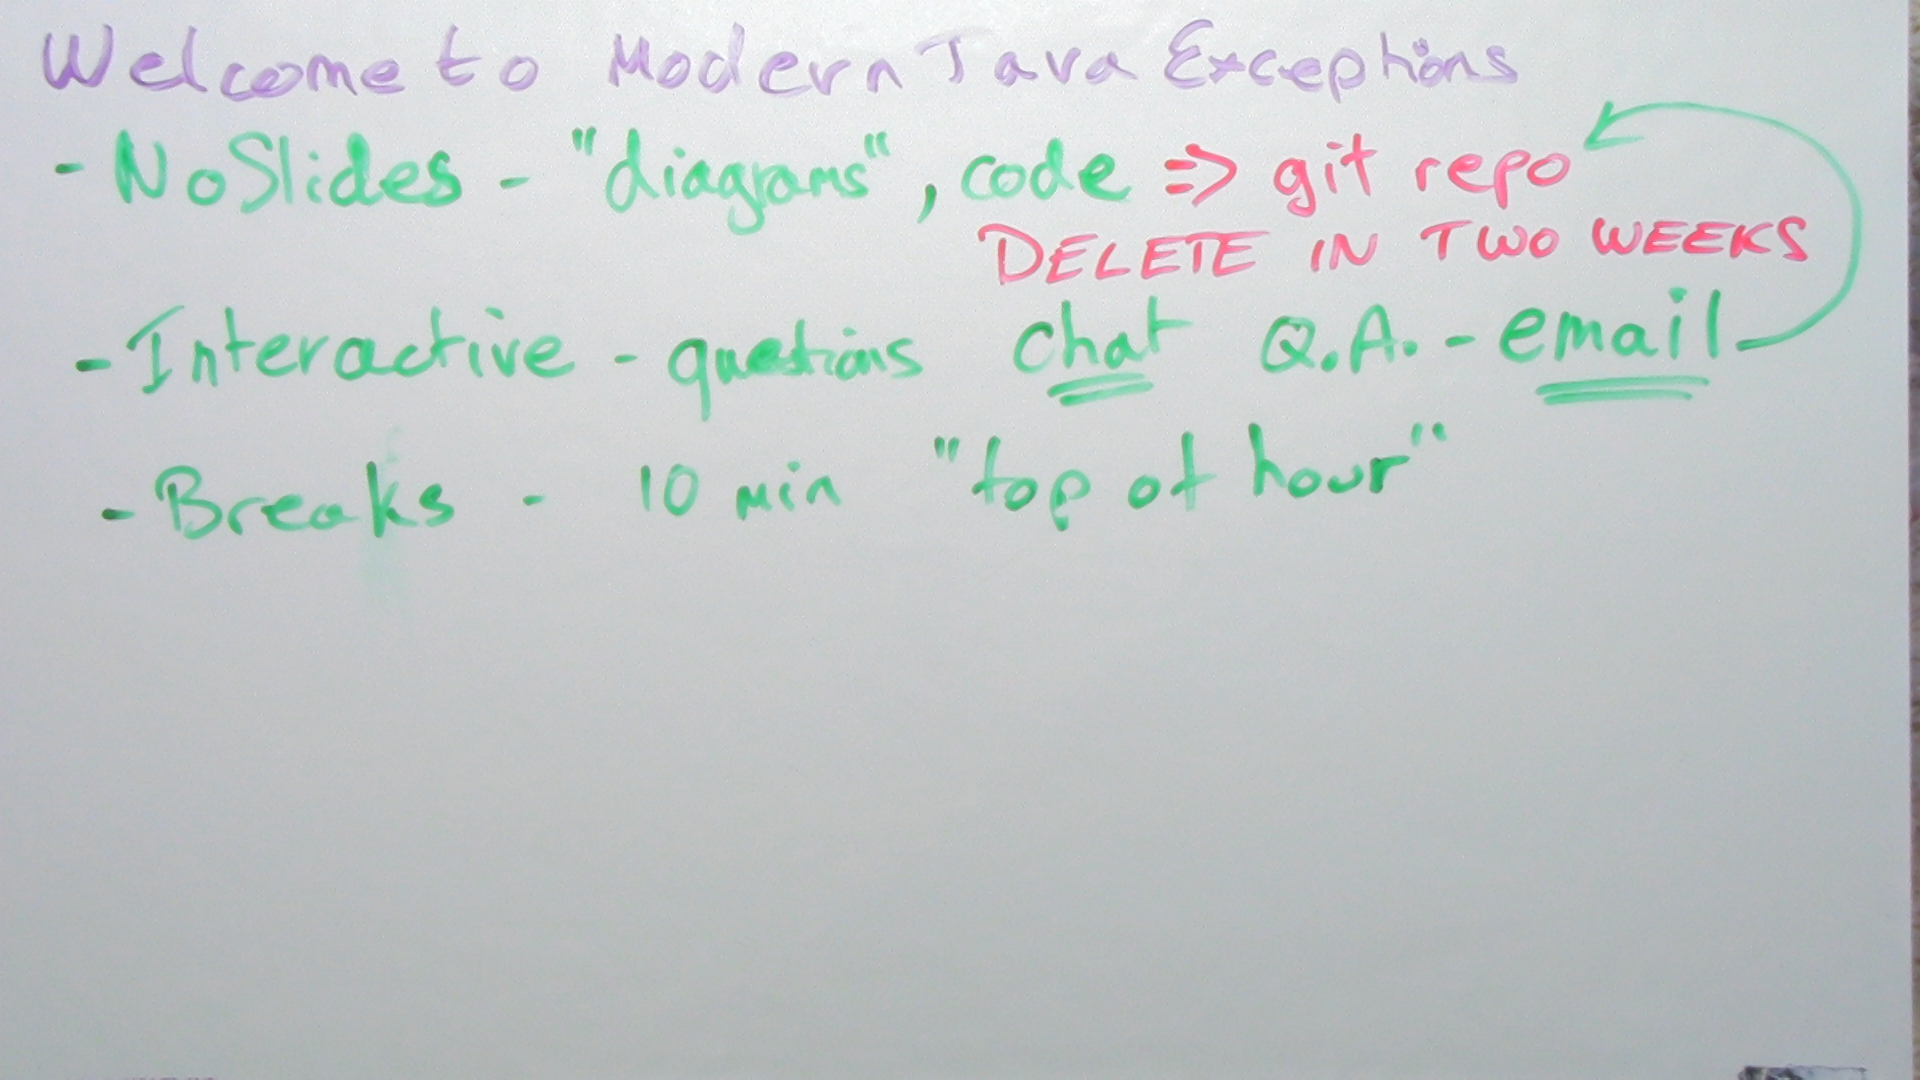 Welcome to Modern Java Exceptions
- No Slides - "diagrams", code => git repo
DELETE IN TWO WEEKS
- Interactive - questions chat Q.A. - email
- Breaks - 10 min "top of hour"